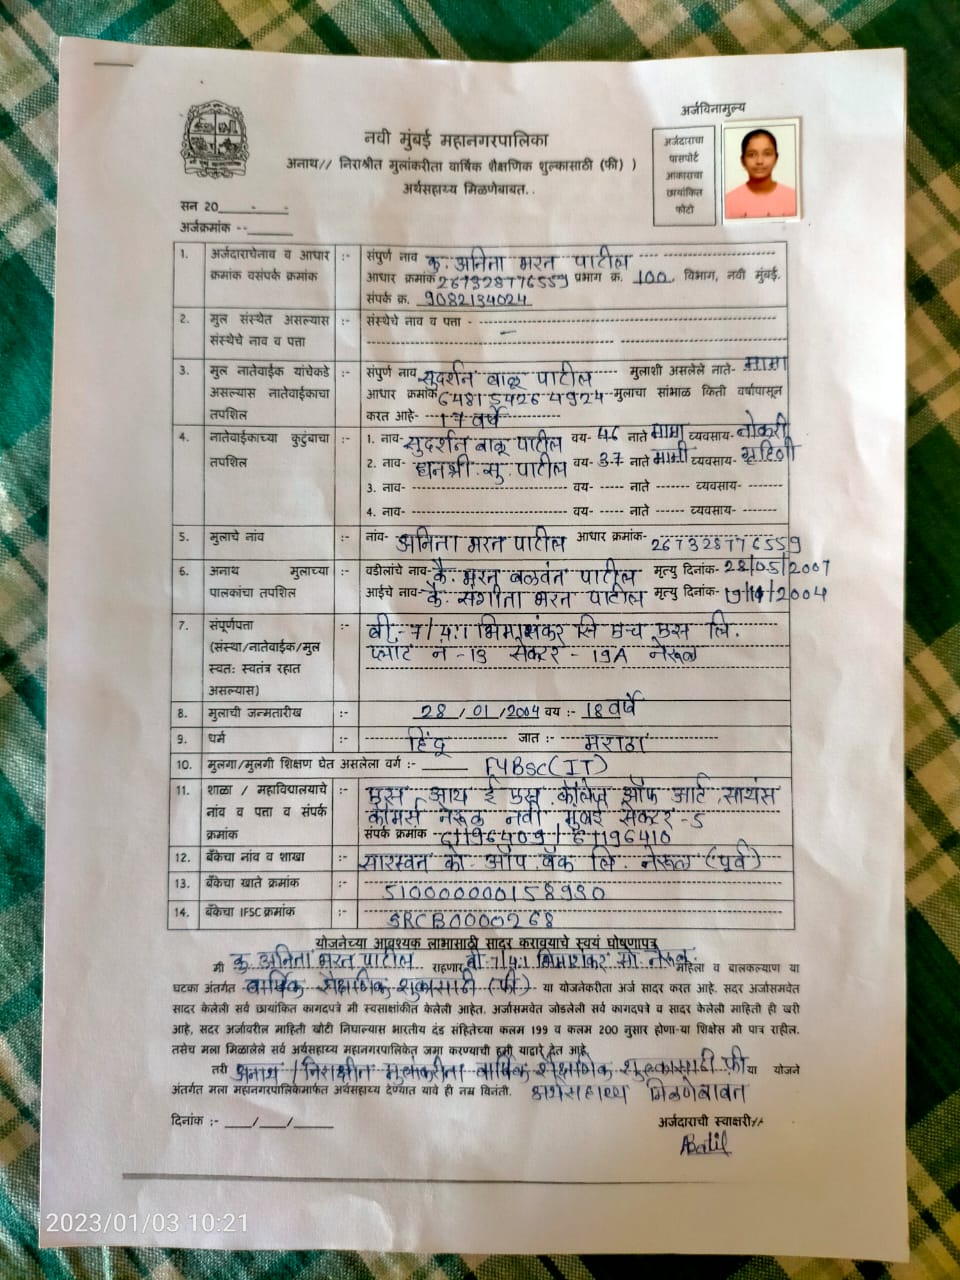 अर्जविनामुल्य
नवी मुंबई महानगरपालिका
अनाथ// निराश्रीत मुलांकरीता वार्षिक शैक्षणिक शुल्कासाठी (फी) )
अर्थसहाय्य मिळणेबाबत..
अर्जदाराचा
पासपोर्ट
आकाराचा
छायांकित
फोटो
सन 20___-___-___
अर्जक्रमांक --____
1. अर्जदाराचेनाव व आधार क्रमांक वसंपर्क क्रमांक :- संपुर्ण नाव कु. अनिता भरत पाटील
आधार क्रमांक 267328776559 प्रभाग क्र. 100 विभाग, नवी मुंबई.
संपर्क क्र. 9082134024
2. मुल संस्थेत असल्यास संस्थेचे नाव व पत्ता :- संस्थेचे नाव व पत्ता - –
3. मुल नातेवाईक यांचेकडे असल्यास नातेवाईकाचा तपशिल :- संपुर्ण नाव सुदर्शन बाळू पाटील मुलाशी असलेले नाते- मामा
आधार क्रमांक 648154264924 मुलाचा सांभाळ किती वर्षापासून
करत आहे- 17 वर्षे
4. नातेवाईकाच्या कुटुंबाचा तपशिल :- 1. नाव- सुदर्शन बाळू पाटील वय- 46 नाते मामा व्यवसाय- नोकरी
2. नाव- धनश्री सु. पाटील वय- 37 नाते मामी व्यवसाय- गृहिणी
3. नाव- वय- नाते व्यवसाय-
4. नाव- वय- नाते व्यवसाय-
5. मुलाचे नांव :- नांव- अनिता भरत पाटील आधार क्रमांक- 267328776559
6. अनाथ मुलाच्या पालकांचा तपशिल :- वडीलांचे नाव- कै. भरत बळवंत पाटील मृत्यु दिनांक- 28/05/2007
आईचे नाव- कै. संगीता भरत पाटील मृत्यु दिनांक- /2004
7. संपूर्णपत्ता (संस्था/नातेवाईक/मुल स्वतः स्वतंत्र रहात असल्यास) :- बी.-7/4:1 भिमाशंकर सि एच एस लि.
प्लॉट नं -13 सेक्टर - 19A नेरूळ
8. मुलाची जन्मतारीख :- 28 / 01 / 2004 वय :- 18 वर्षे
9. धर्म :- हिंदू जात :- मराठा
10. मुलगा/मुलगी शिक्षण घेत असलेला वर्ग :- FYBSC(IT)
11. शाळा / महाविद्यालयाचे नांव व पत्ता व संपर्क क्रमांक :- एस आय ई एस कॉलेज ऑफ आर्ट, सायंस
कॉमर्स नेरूळ नवी मुंबई सेक्टर - 5
संपर्क क्रमांक - 61196409 / 61196410
12. बँकेचा नांव व शाखा :- सारस्वत को. ऑप बँक लि. नेरूळ (पूर्व)
13. बँकेचा खाते क्रमांक :- 510000000158930
14. बँकेचा IFSC क्रमांक :- SRCB0000268
योजनेच्या आवश्यक लाभासाठी सादर करावयाचे स्वयं घोषणापत्र
मी कु. अनिता भरत पाटील राहणार बी-7/4:1 भिमाशंकर सो. नेरूळ महिला व बालकल्याण या
घटका अंतर्गत वार्षिक शैक्षणिक शुल्कासाठी (फी) या योजनेकरीता अर्ज सादर करत आहे. सदर अर्जासमवेत
सादर केलेली सर्व छायांकित कागदपत्रे मी स्वसाक्षांकीत केलेली आहेत. अर्जासमवेत जोडलेली सर्व कागदपत्रे व सादर केलेली माहिती ही खरी
आहे, सदर अर्जावरील माहिती खोटी निघाल्यास भारतीय दंड संहितेच्या कलम 199 व कलम 200 नुसार होणा-या शिक्षेस मी पात्र राहील.
तसेच मला मिळालेले सर्व अर्थसहाय्य महानगरपालिकेत जमा करण्याची हमी याद्वारे देत आहे.
तरी अनाथ / निराश्रीत मुलांकरीता वार्षिक शैक्षणिक शुल्कासाठी फी या योजने
अंतर्गत मला महानगरपालिकेमार्फत अर्थसहाय्य देण्यात यावे ही नम्र विनंती. अर्थसहाय्य मिळणेबाबत
दिनांक :- ___/___/___
अर्जदाराची स्वाक्षरी
2023/01/03 10:21